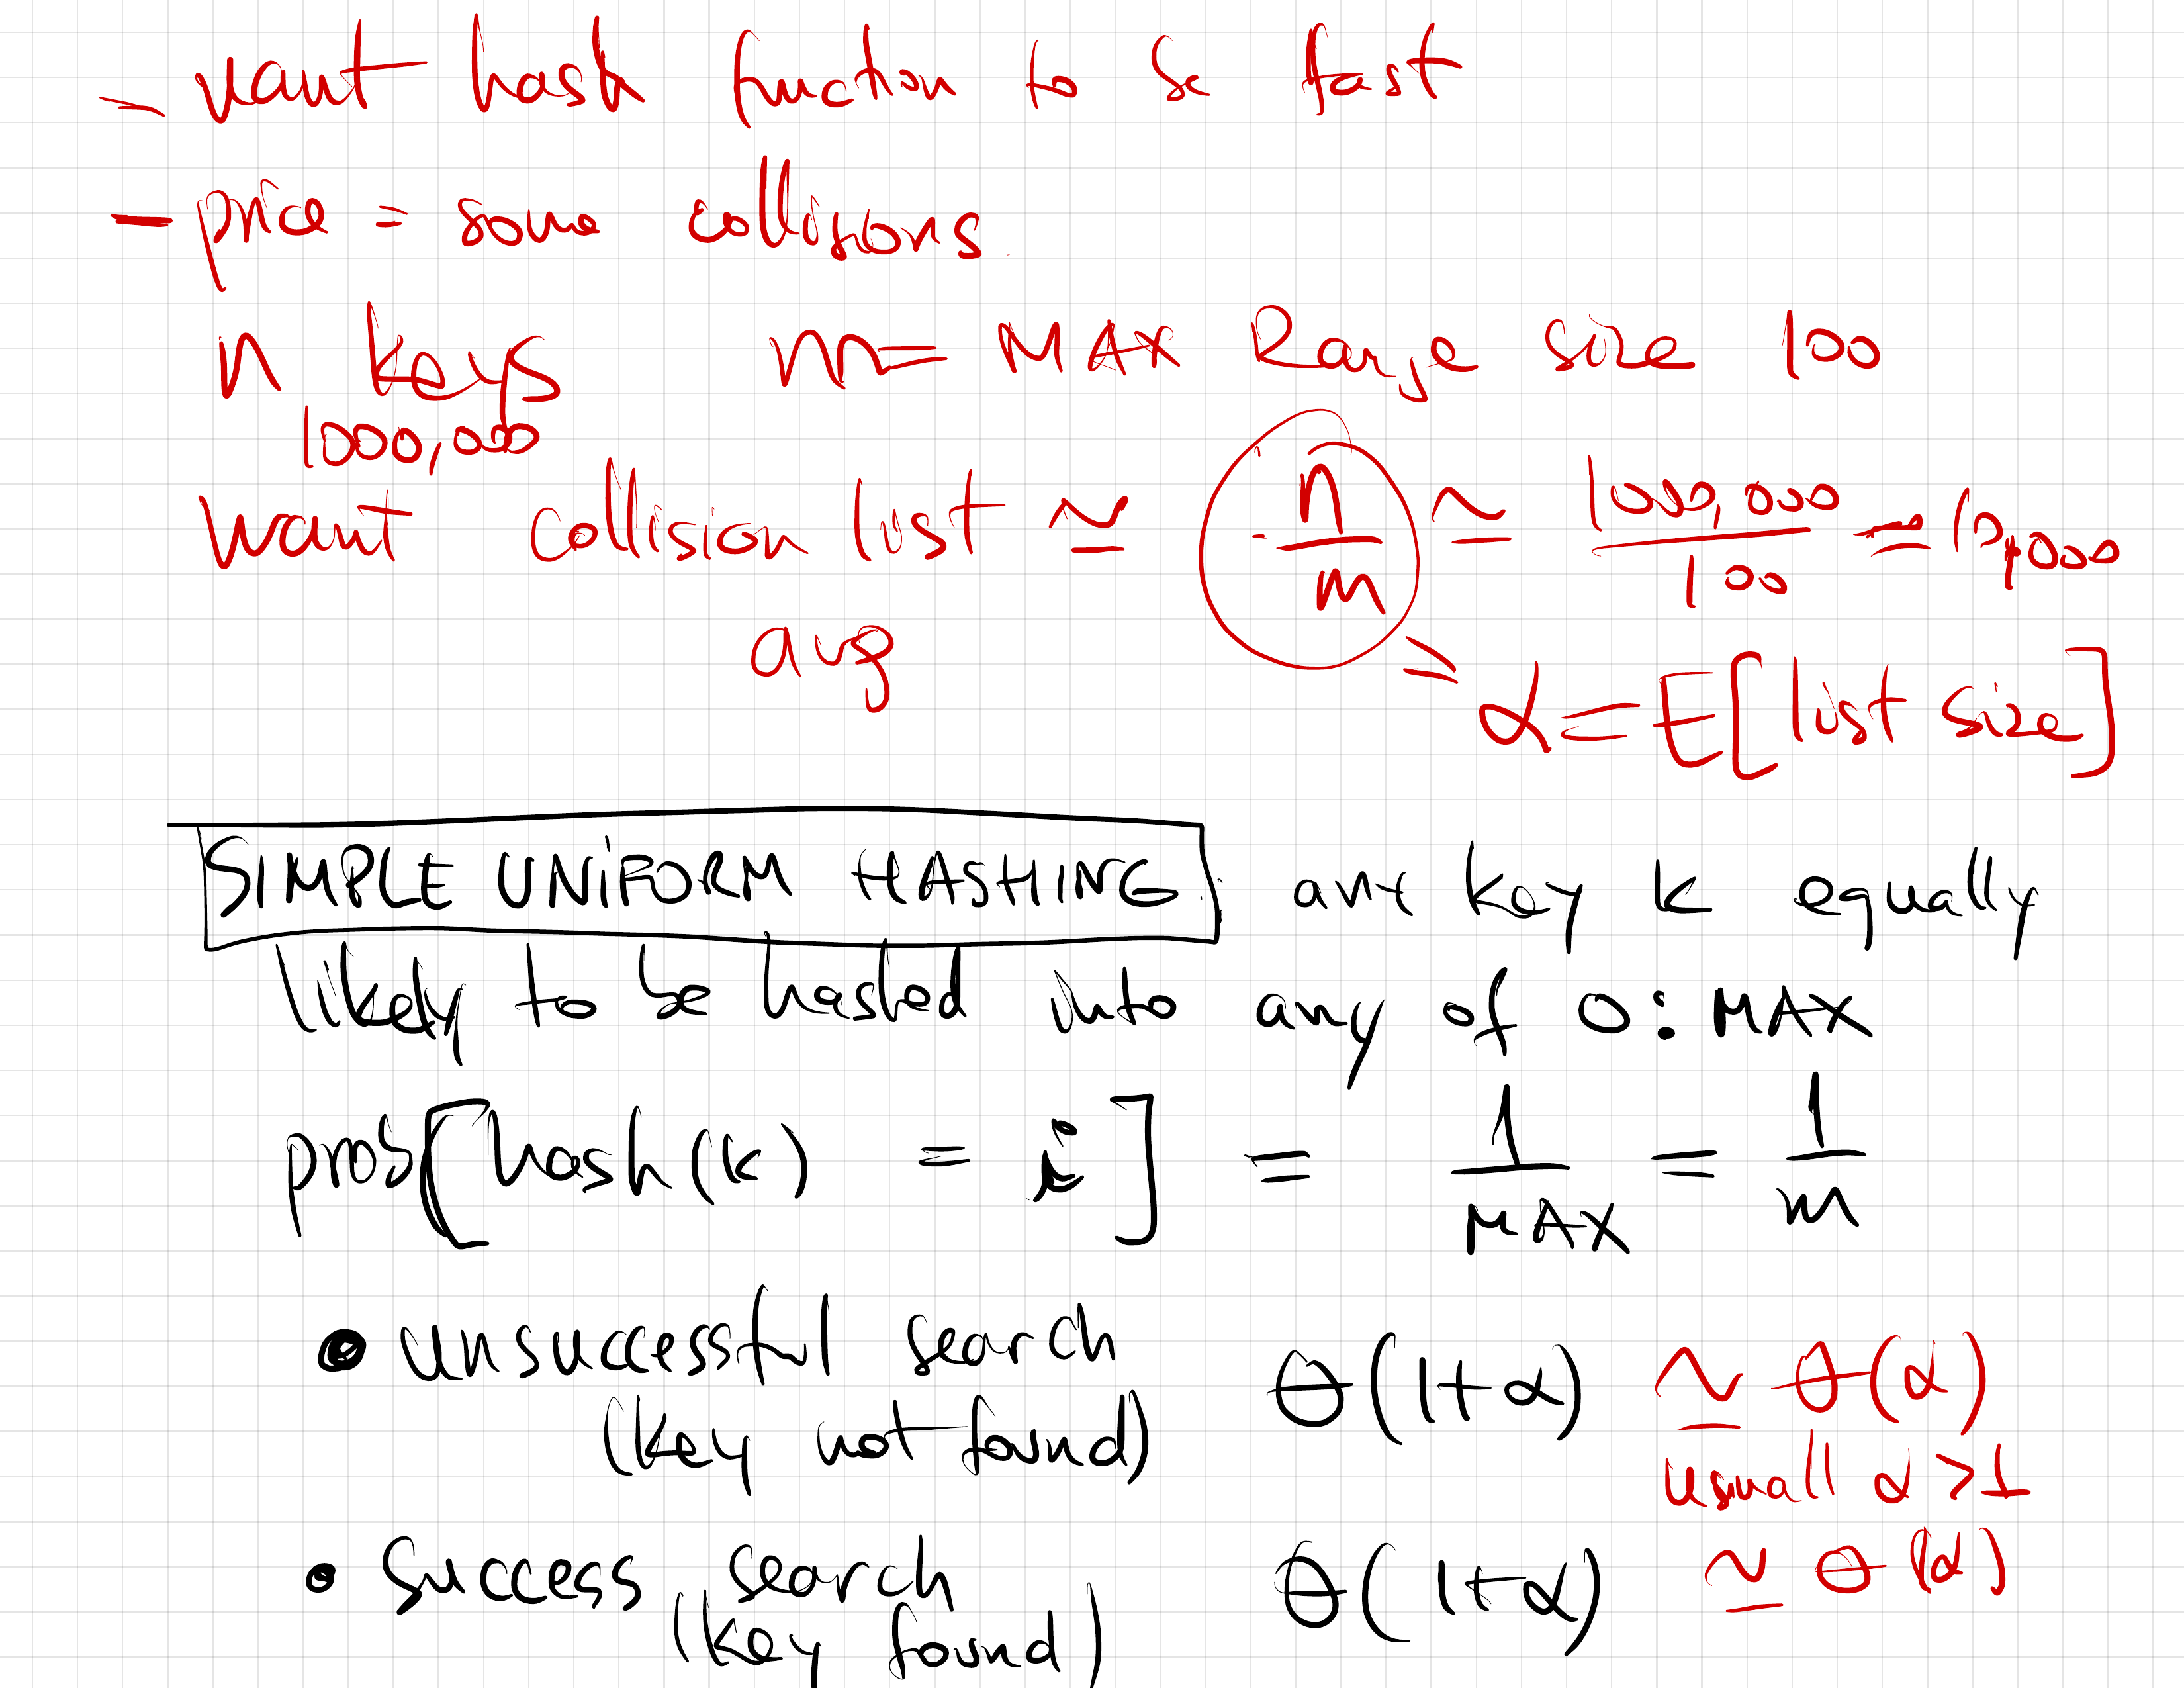 - want hash function to be fast
- price = some collisions.
n keys m = MAX Range size 100
1000,000
want collision list ≃ n/m ≃ 1000,000/100 =
avg
= α = E[list size]
SIMPLE UNIFORM HASHING: any key k equally
likely to be hashed into any of 0:MAX
prob[hash(k) = i] = 1/MAX = 1/m
• unsuccessful search Θ(1+α) ≃ Θ(α)
(key not found) usuall α>1
• Success search Θ(1+α) ≃ Θ(α)
(key found)